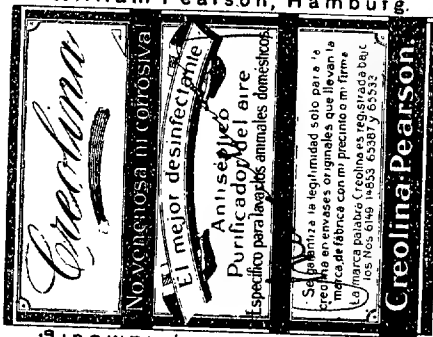 William Pearson, Hamburg.
Creolina
No venenosa ni corrosiva
El mejor desinfectante
Antiséptico
Purificador del aire
Específico para lavar los animales domésticos.
Se garantiza la legitimidad solo para la
creolina en envases originales que llevan la
marca de fábrica con mi precinto o mi firma
La marca palabra Creolina es registrada bajo
los Nos 6149 14853 65387 y 65533
Creolina Pearson.